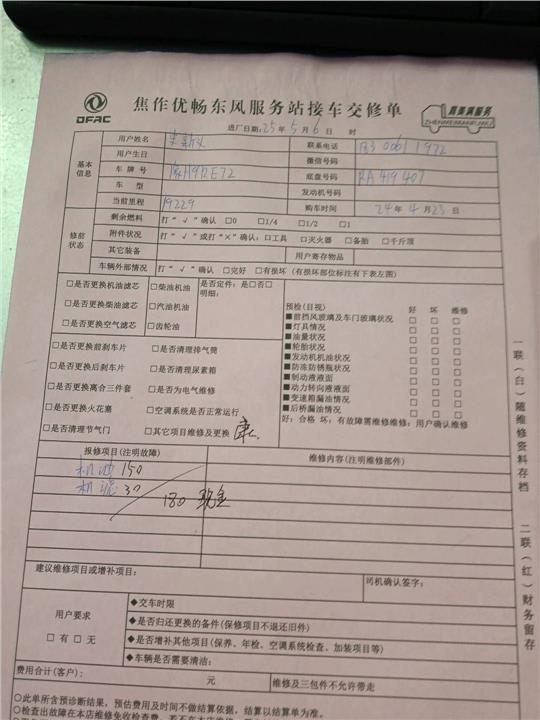 DFAC
焦作优畅东风服务站接车交修单
真美满服务
ZHENMEIMANFUWU
进厂日期:25年5月6日 时
基本信息
用户姓名
联系电话
用户生日
微信号码
车牌号
底盘号码 RA419407
车型
发动机号码
当前里程 19229
购车时间 24年4月23日
修前状态
剩余燃料 打“√”确认 □0 □1/4 □1/2 □1
附件状况 打“√”或打“×”确认:□工具 □灭火器 □备胎 □千斤顶
其它装备 用户寄存物品
车辆外部情况 打“√”确认 □完好 □有损坏(有损坏部位标注有下表左图)
□是否更换机油滤芯 □柴油机油 是否定件:是□否□
明细:
□是否更换柴油滤芯 □汽油机油
□是否更换空气滤芯 □齿轮油
□是否更换前刹车片 □是否清理排气筒
□是否更换后刹车片 □是否清理尿素箱
□是否更换离合三件套 □是否为电气维修
□是否更换火花塞 □空调系统是否正常运行
□是否清理节气门 □其它项目维修及更换
预检(目视) 好 坏 维修
■前挡风玻璃及车门玻璃状况 □ □ □
■灯具情况 □ □ □
■油量状况 □ □ □
■轮胎状况 □ □ □
■发动机机油状况 □ □ □
■防冻防锈瓶状况 □ □ □
■制动液液面 □ □ □
■动力转向液液面 □ □ □
■变速箱漏油情况 □ □ □
■后桥漏油情况 □ □ □
好:合格 坏:有故障需维修维修:用户确认维修
报修项目(注明故障) 维修内容(注明维修部件)
机油 150
机滤 30
180 现金
建议维修项目或增补项目:
司机确认签字:
用户要求
□有 □无
◆交车时限
◆是否归还更换的备件(保修项目不退还旧件)
◆是否增补其他项目(保养、年检、空调系统检查、加装项目等)
◆车辆是否需要清洁:
费用合计(客户): 元 维修及三包件不允许带走
○此单所含预诊断结果,预估费用及时间不做结算依据,结算以结算单为准。
一联(白)随维修资料存档
二联(红)财务留存